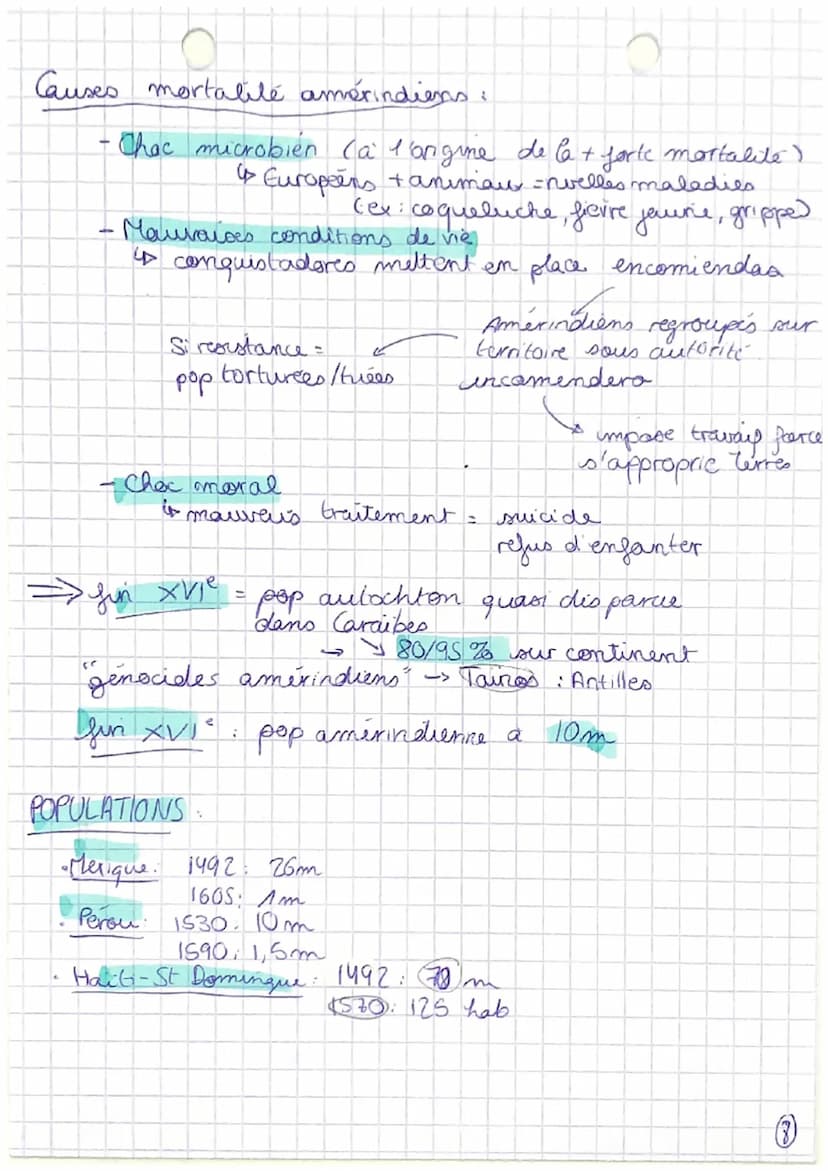 Causes mortalité amérindiens :
- Choc microbien (à l'origine de la + forte mortalité)
↳ Européens + animaux = nvelles maladies
(ex : coqueluche, fièvre jaune, grippe)
- Mauvaises conditions de vie
↳ conquistadores mettent en place encomiendas
Amérindiens regroupés sur
territoire sous autorité
encomendero
Si resistance =
pop torturées/tuées
impose travail forcé
s'approprie terres
- Choc moral
↳ mauvais traitement = suicide
refus d'enfanter
⇒ fin XVIe = pop autochton quasi disparue
dans Caraïbes
→ ↘ 80/95 % sur continent
"génocides amérindiens" → Tainos : Antilles
fin XVIe : pop amérindienne à 10m
POPULATIONS :
• Mexique : 1492 : 26m
1605 : 1m
• Pérou : 1530 : 10m
1590 : 1,5m
• Haiti-St Domingue : 1492 : 70 m
1570 : 125 hab
8